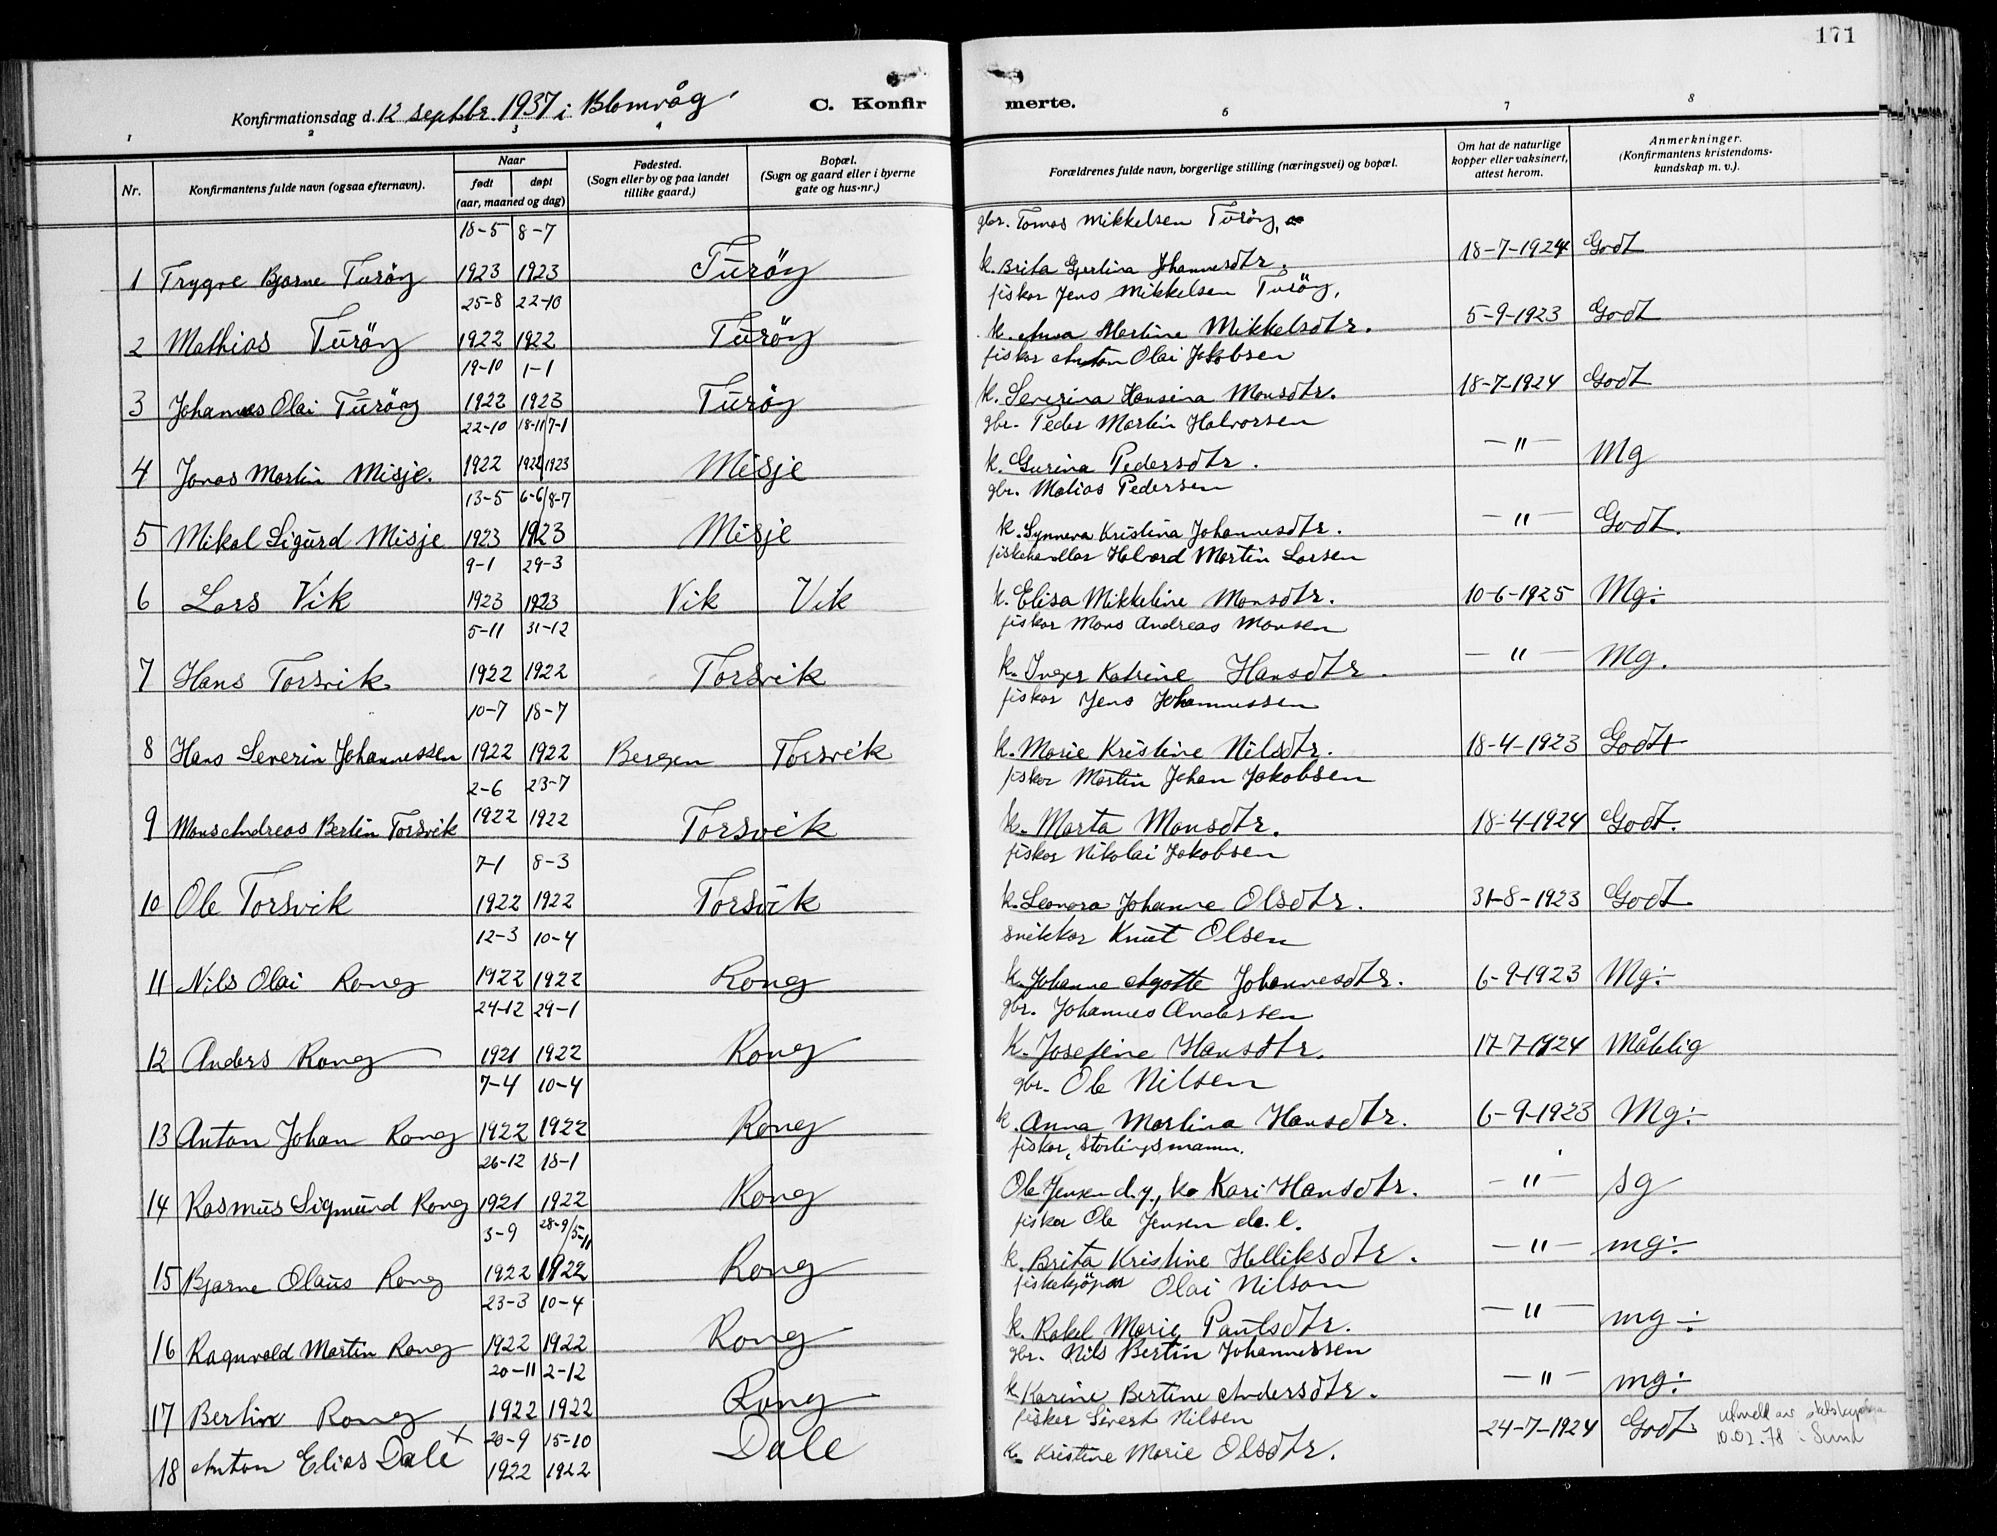 171
Konfirmationsdag d. 12 septbr. 1937 i Blomvåg C. Konfir merte.
1 2 3 4 6 7 8
Nr. Konfirmantens fulde navn (ogsaa efternavn). Naar født døpt (aar, maaned og dag) Fødested. (Sogn eller by og paa landet tillike gaard.) Bopæl. (Sogn og gaard eller i byerne gate og hus-nr.) Forældrenes fulde navn, borgerlige stilling (næringsvei) og bopæl. Om hat de naturlige kopper eller vaksinert, attest herom. Anmerkninger. (Konfirmantens kristendoms-kundskap m. v.).
18-5 8-7 gbr. Tomas Mikkelsen Turøy,
1 Trygve Bjarne Turøy 1923 1923 Turøy k. Brita Gjertina Johannesdtr. 18-7-1924 Godt
25-8 22-10 fisker Jens Mikkelsen Turöy,
2 Mathias Turöy 1922 1922 Turöy k. Anna Martine Mikkelsdtr. 5-9-1923 Godt
19-10 1-1 fisker Anton Olai Jakobsen
3 Johannes Olai Turöy 1922 1923 Turöy k. Severina Hansina Monsdtr. 18-7-1924 Godt
22-10 18-11/7-1 gbr. Peder Martin Halvorsen
4 Jonas Martin Misje. 1922 1922/1923 Misje k. Gurina Pedersdtr. —"— Mg
13-5 6-6/8-7 gbr. Matias Pedersen
5 Mikal Sigurd Misje 1923 1923 Misje k. Synneva Kristina Johannesdtr. —"— Godt.
9-1 29-3 fiskehandler Halvard Martin Larsen
6 Lars Vik 1923 1923 Vik Vik k. Elisa Mikkeline Monsdtr. 10-6-1925 Mg÷
5-11 31-12 fisker Mons Andreas Monsen
7 Hans Torsvik 1922 1922 Torsvik k. Inger Katrine Hansdtr. —"— Mg.
10-7 18-7 fisker Jens Johannessen
8 Hans Severin Johannessen 1922 1922 Bergen Torsvik k. Marie Kristine Nilsdtr. 18-4-1923 Godt
2-6 23-7 fisker Martin Johan Jakobsen
9 Mons Andreas Bertin Torsvik 1922 1922 Torsvik k. Marta Monsdtr. 18-4-1924 Godt.
7-1 8-3 fisker Nikolai Jakobsen
10 Ole Torsvik 1922 1922 Torsvik k. Leonora Johanne Olsdtr. 31-8-1923 Godt
12-3 10-4 snikker Knut Olsen
11 Nils Olai Rong 1922 1922 Rong k. Johanne Agotte Johannesdtr. 6-9-1923 Mg÷
24-12 29-1 gbr. Johannes Andersen
12 Anders Rong 1921 1922 Rong k. Josefine Hansdtr. 17-7-1924 Måtelig
7-4 10-4 gbr. Ole Nilsen
13 Anton Johan Rong 1922 1922 Rong k. Anna Martina Hansdtr. 6-9-1923 Mg÷
26-12 18-1 fisker, stortingsmann.
14 Rasmus Sigmund Rong 1921 1922 Rong Ole Jensen d.y., k. Kari Hansdtr. —"— Sg
3-9 28-9/5-11 fisker Ole Jensen d.e.
15 Bjarne Olaus Rong 1922 1922 Rong k. Brita Kristine Helliksdtr. —"— mg÷
23-3 10-4 fiskekjöper Olai Nilson
16 Ragnvald Martin Rong 1922 1922 Rong k. Rakel Marie Paulsdtr. —"— mg÷
20-11 2-12 gbr. Nils Bertin Johannessen
17 Bertin Rong 1922 1922 Rong k. Karine Bertine Andersdtr. —"— mg÷
20-9 15-10 fisker Sivert Nilsen
18 Anton Elias Dale x 1922 1922 Dale k. Kristine Marie Olsdtr. 24-7-1924 Godt utmeld av
10.02.78 i Sund